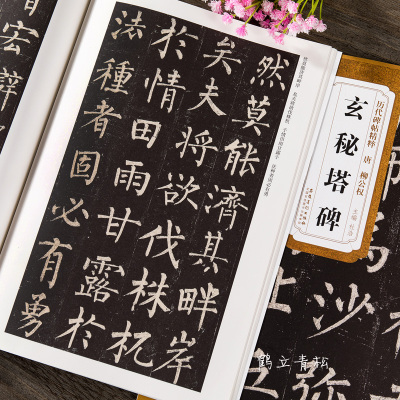 然莫能濟其畔岸
矣夫將欲伐株杌
於情田雨甘露於
法種者固必有勇
有宏
历代碑帖精粹 唐 柳公权
玄秘塔碑
主编
沙
鹤立青松